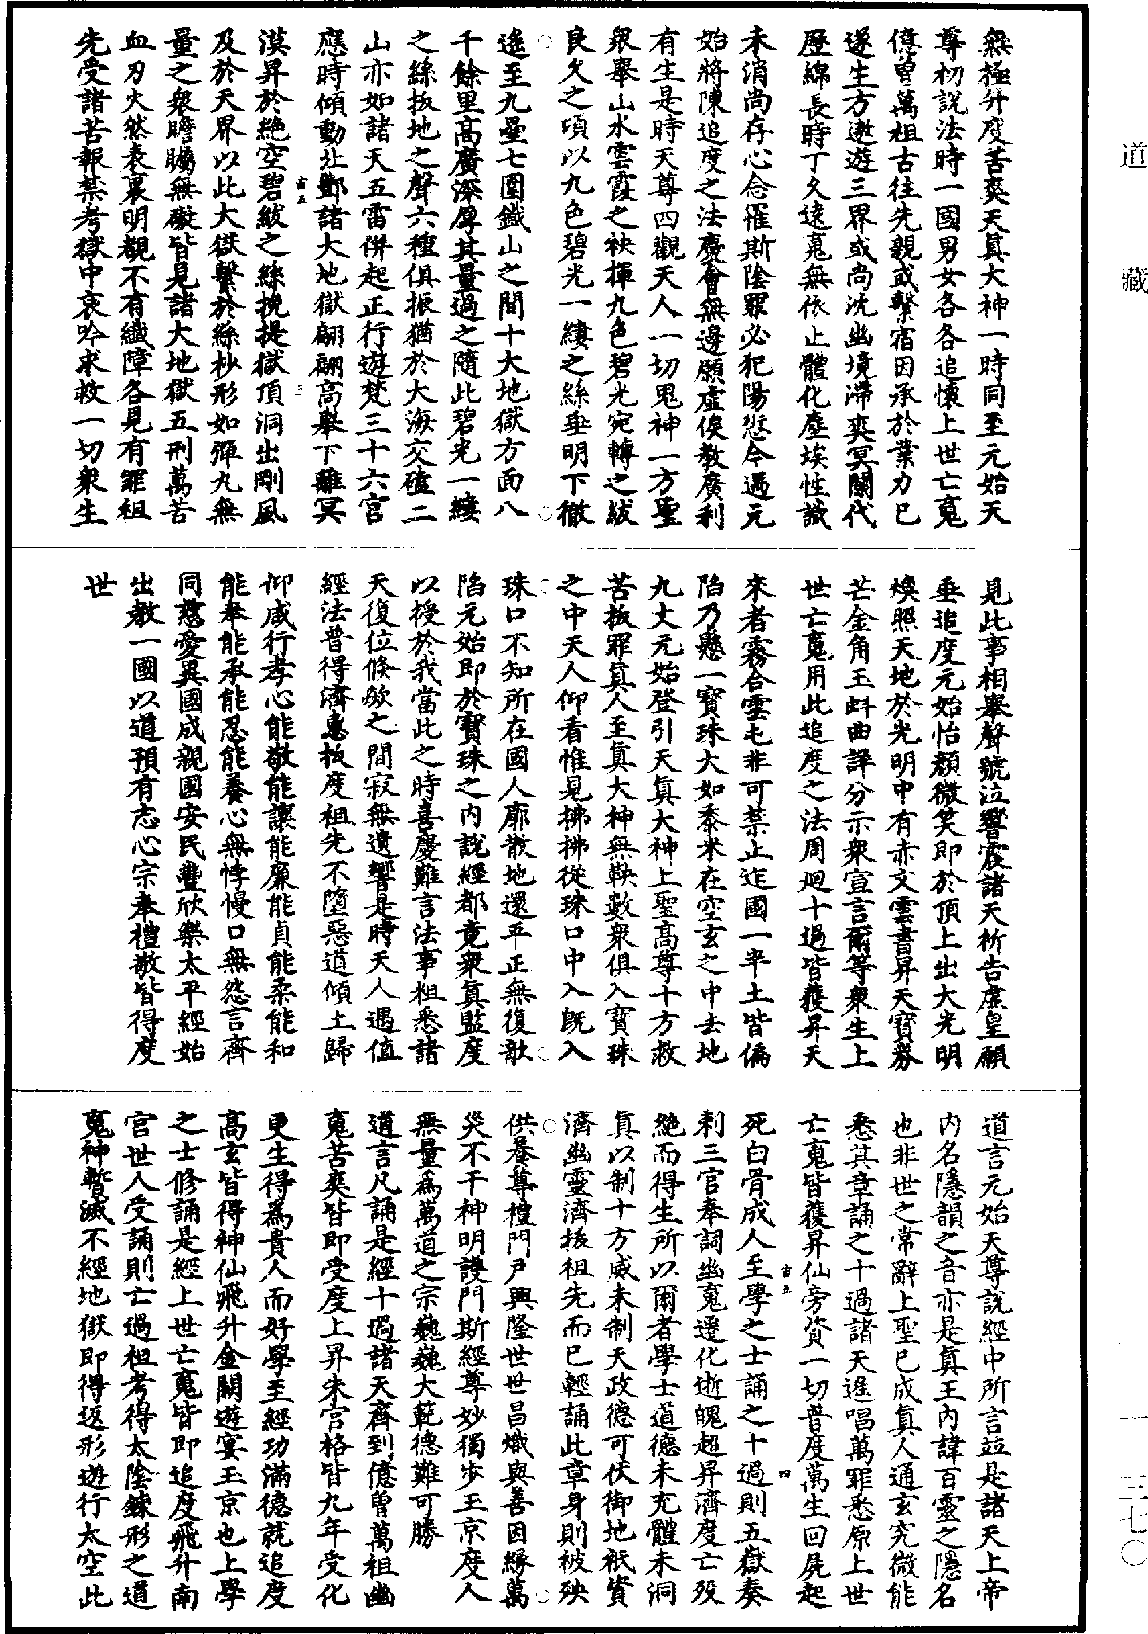 道藏
一三七〇
無極升度苦爽天真大神一時同至元始天
尊初說法時一國男女各各追懷上世亡䰟
億曾萬祖古往先親或繫宿因承於業力已
遂生方遨遊三界或尚沈幽境滯爽冥關代
歷綿長時丁久遠䰟無依止體化塵埃性識
未消尚存心念罹斯陰罪必犯陽愆今遇元
始將陳追度之法慶會無邊願虛俟教廣利
有生是時天尊四觀天人一切鬼神一方聖
衆舉山水雲霞之袂揮九色碧光宛轉之紱
良久之頃以九色碧光一縷之絲垂明下徹
遙至九壘七圍鐵山之間十大地獄方面八
千餘里高廣深厚其量過之隨此碧光一縷
之絲拔地之聲六種俱振猶於大海交磕二
山亦如諸天五雷併起正行遊梵三十六宮
應時傾動北酆諸大地獄翩翩高舉下離冥
漠昇於絕空碧紱之絲挽提獄頂洞出剛風
及於天界以此大獄繫於絲杪形如彈丸無
量之衆瞻矚無礙皆見諸大地獄五刑萬苦
血刃火然表裏明覩不有纖障各見有罪祖
先受諸苦報禁考獄中哀吟求救一切衆生
見此事相舉聲號泣響震諸天祈告虛皇願
垂追度元始怡顏微笑即於頂上出大光明
煥照天地於光明中有赤文雲書昇天寶券
芒金角玉㪷曲詳分示衆宣言爾等衆生上
世亡䰟用此追度之法周迴十過皆獲昇天
來者霧合雲屯非可禁止迮國一半土皆偏
陷乃懸一寶珠大如黍米在空玄之中去地
九丈元始登引天真大神上聖高尊十方救
苦拔罪真人至真大神無鞅數衆俱入寶珠
之中天人仰看惟見拂拂從珠口中入既入
珠口不知所在國人廓散地還平正無復欹
陷元始即於寶珠之內說經都竟衆真監度
以授於我當此之時喜慶難言法事粗悉諸
天復位倏欻之間寂無遺響是時天人遇值
經法普得濟惠拔度祖先不墮惡道傾土歸
仰咸行孝心能敬能讓能廉能貞能柔能和
能奉能承能忍能養心無悖慢口無惡言齊
同慈愛異國成親國安民豐欣樂太平經始
出教一國以道預有志心宗奉禮敬皆得度
世
道言元始天尊說經中所言並是諸天上帝
內名隱韻之音亦是真王內諱百靈之隱名
也非世之常辭上聖已成真人通玄究微能
悉其章誦之十過諸天遙唱萬罪悉原上世
亡䰟皆獲昇仙旁資一切普度萬生回屍起
死白骨成人至學之士誦之十過則五嶽奏
刺三官奉詞幽䰟遷化逝魄超昇濟度亡歿
絕而得生所以爾者學士道德未充體未洞
真以制十方威未制天政德可伏御地祇資
濟幽靈濟拔祖先而已輕誦此章身則被殃
供養尊禮門戶興隆世世昌熾與善因緣萬
災不干神明護門斯經尊妙獨步玉京度人
無量爲萬道之宗巍巍大範德難可勝
道言凡誦是經十過諸天齊到億曾萬祖幽
䰟苦爽皆即受度上昇朱宮格皆九年受化
更生得爲貴人而好學至經功滿德就追度
高玄皆得神仙飛升金闕遊宴玉京也上學
之士修誦是經上世亡䰟皆即追度飛升南
宮世人受誦則亡過祖考得太陰鍊形之道
䰟神暫滅不經地獄即得返形遊行太空此